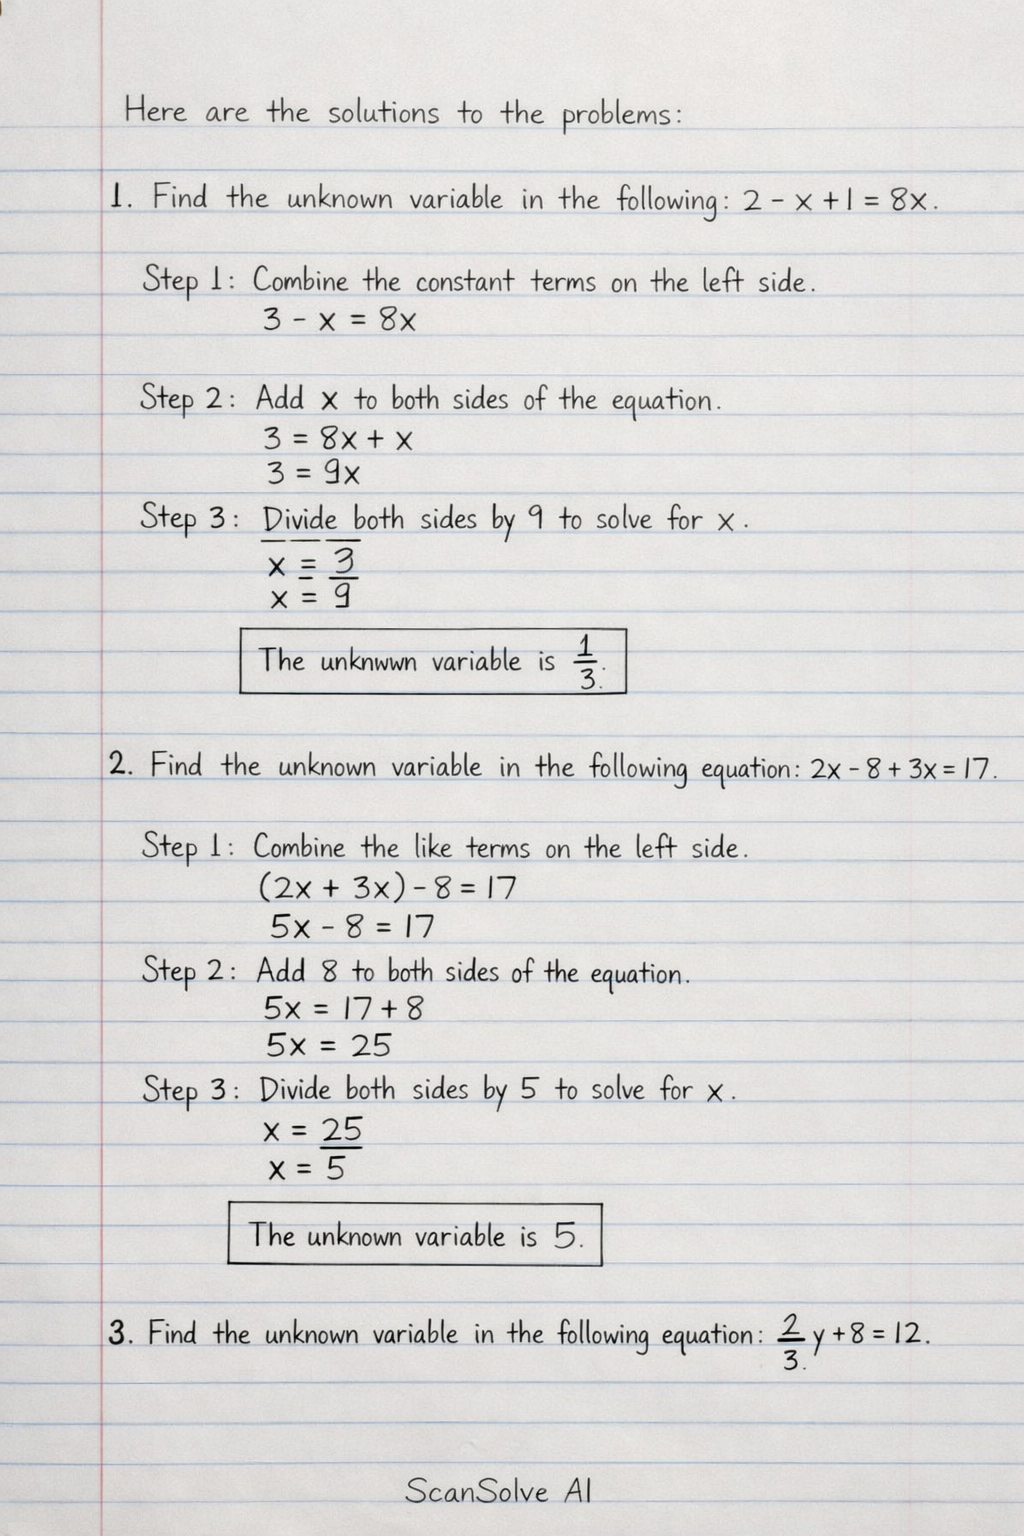 Here are the solutions to the problems:
1. Find the unknown variable in the following: 2 - x + 1 = 8x.
Step 1: Combine the constant terms on the left side.
3 - x = 8x
Step 2: Add x to both sides of the equation.
3 = 8x + x
3 = 9x
Step 3: Divide both sides by 9 to solve for x.
x = 3
x = 9
The unknwwn variable is 1/3.
2. Find the unknown variable in the following equation: 2x - 8 + 3x = 17.
Step 1: Combine the like terms on the left side.
(2x + 3x) - 8 = 17
5x - 8 = 17
Step 2: Add 8 to both sides of the equation.
5x = 17 + 8
5x = 25
Step 3: Divide both sides by 5 to solve for x.
x = 25
x = 5
The unknown variable is 5.
3. Find the unknown variable in the following equation: 2/3. y + 8 = 12.
ScanSolve AI